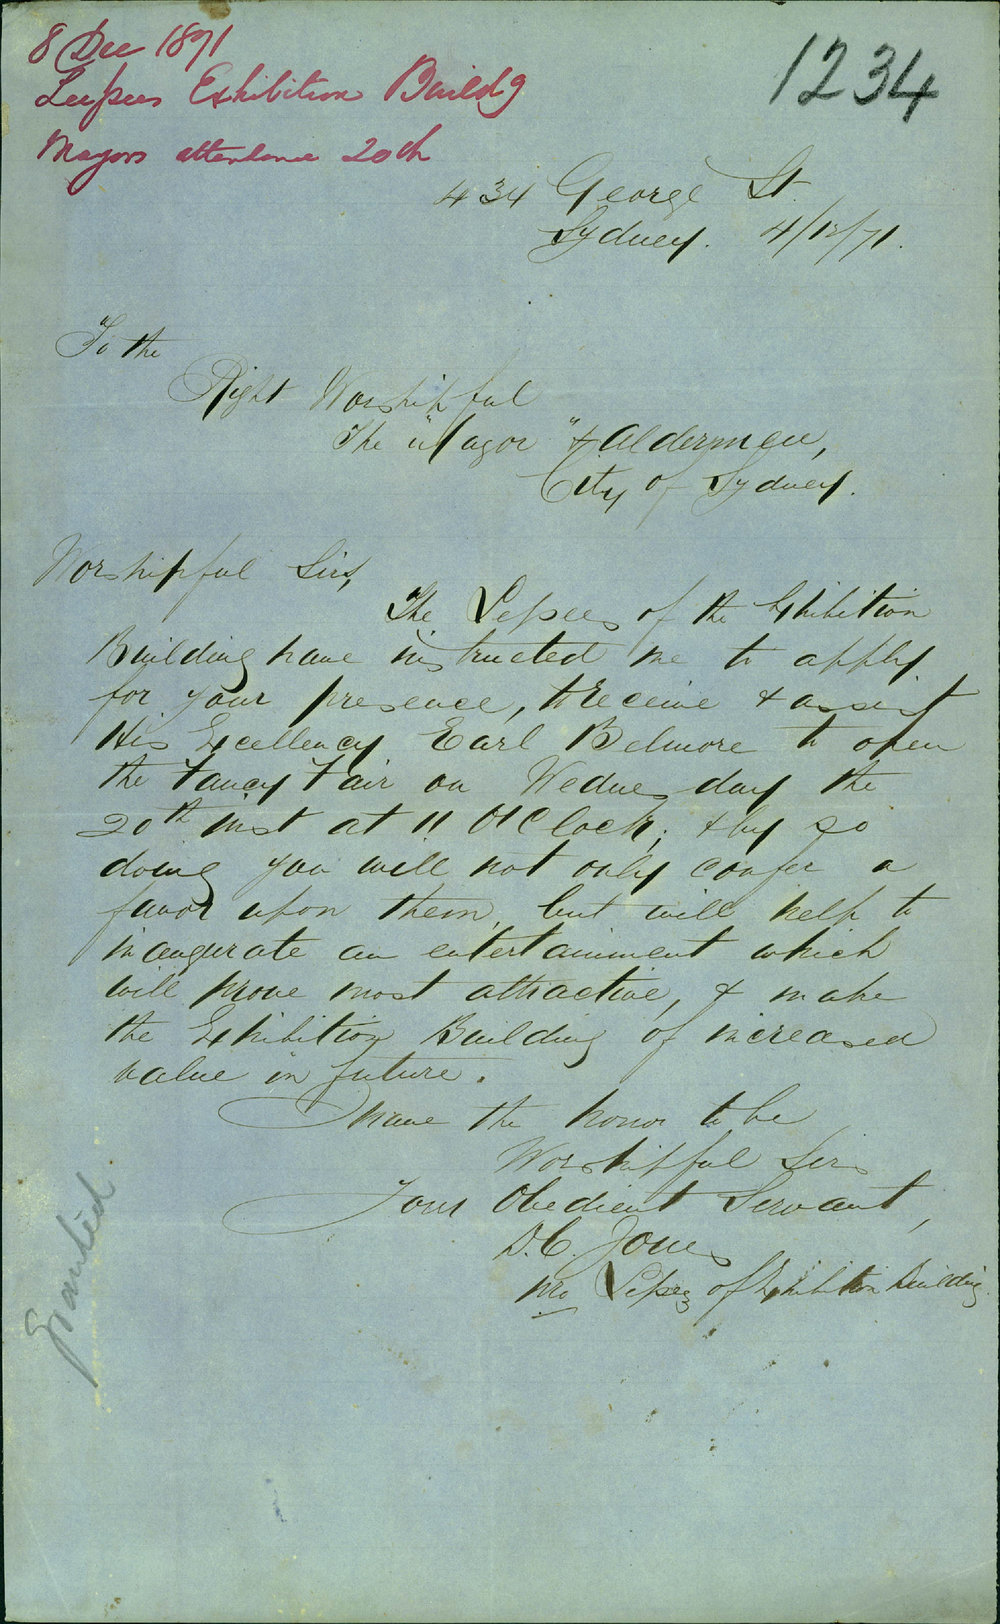 8 Dec 1871
Leesees Exhibition Buildg
Mayors attendance 20th
1234
434 George St.
Sydney. 4/12/71.
To the
Right Worshipful
The "Mayor" & Aldermen,
City of Sydney.
Worshipful Sirs,
The Lessees of the Exhibition
Building have instructed me to apply
for your presence, to receive & assist
His Excellency Earl Belmore to open
the Fancy Fair on Wednesday the
20th inst at 11 O'Clock; & by so
doing you will not only confer a
favor upon them, but will help to
inaugurate an entertainment which
will prove most attractive, & make
the Exhibition Building of increased
value in future.
I have the honor to be
Worshipful Sirs
Your Obedient Servant,
D.C. Jones
pro Lessees of Exhibition Building.
Granted